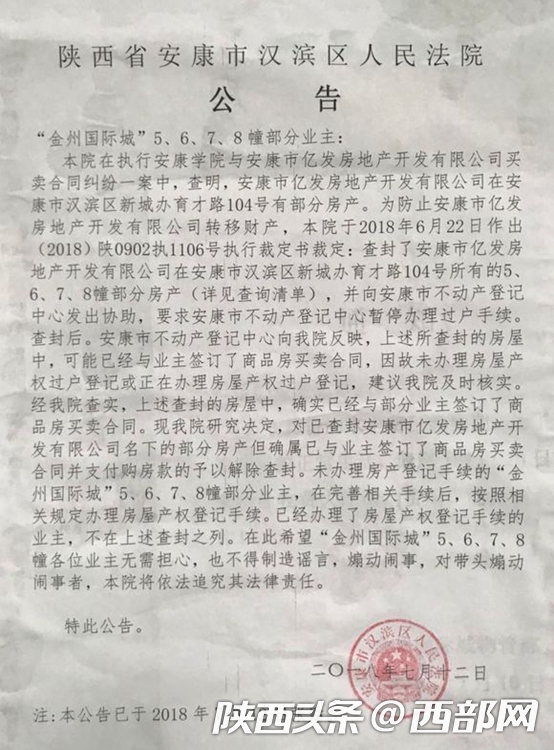 陕西省安康市汉滨区人民法院
公 告
“金州国际城”5、6、7、8幢部分业主：
本院在执行安康学院与安康市亿发房地产开发有限公司买
卖合同纠纷一案中，查明，安康市亿发房地产开发有限公司在安
康市汉滨区新城办育才路104号有部分房产。为防止安康市亿发
房地产开发有限公司转移财产，本院于2018年6月22日作出
（2018）陕0902执1106号执行裁定书裁定：查封了安康市亿发房
地产开发有限公司在安康市汉滨区新城办育才路104号所有的5、
6、7、8幢部分房产（详见查询清单），并向安康市不动产登记
中心发出协助，要求安康市不动产登记中心暂停办理过户手续。
查封后。安康市不动产登记中心向我院反映，上述所查封的房屋
中，可能已经与业主签订了商品房买卖合同，因故未办理房屋产
权过户登记或正在办理房屋产权过户登记，建议我院及时核实。
经我院查实，上述查封的房屋中，确实已经与部分业主签订了商
品房买卖合同。现我院研究决定，对已查封安康市亿发房地产开
发有限公司名下的部分房产但确属已与业主签订了商品房买卖
合同并支付购房款的予以解除查封。未办理房产登记手续的“金
州国际城”5、6、7、8幢部分业主，在完善相关手续后，按照相
关规定办理房屋产权登记手续。已经办理了房屋产权登记手续的
业主，不在上述查封之列。在此希望“金州国际城”5、6、7、8
幢各位业主无需担心，也不得制造谣言，煽动闹事，对带头煽动
闹事者，本院将依法追究其法律责任。
特此公告。
安康市汉滨区人民法院
二〇一八年七月十二日
注:本公告已于2018年
陕西头条@西部网